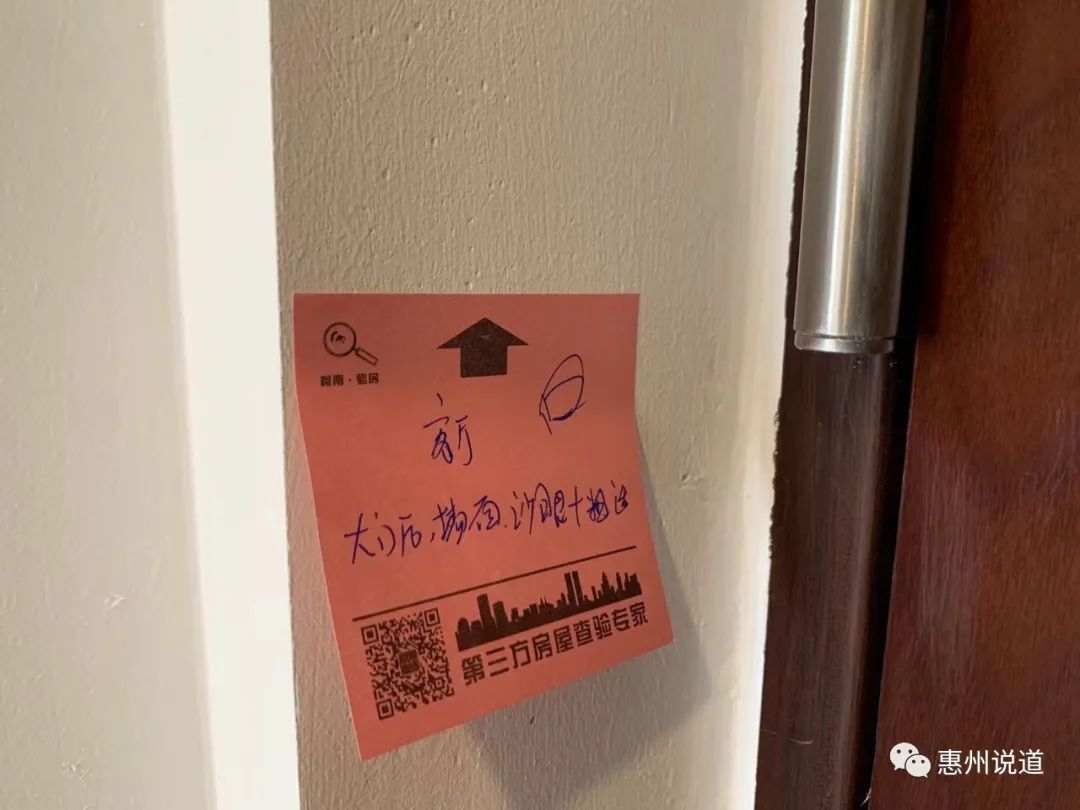 柯南·验房
客厅
大门后、墙面、沙眼+粗造
第三方房屋查验专家
惠州说道